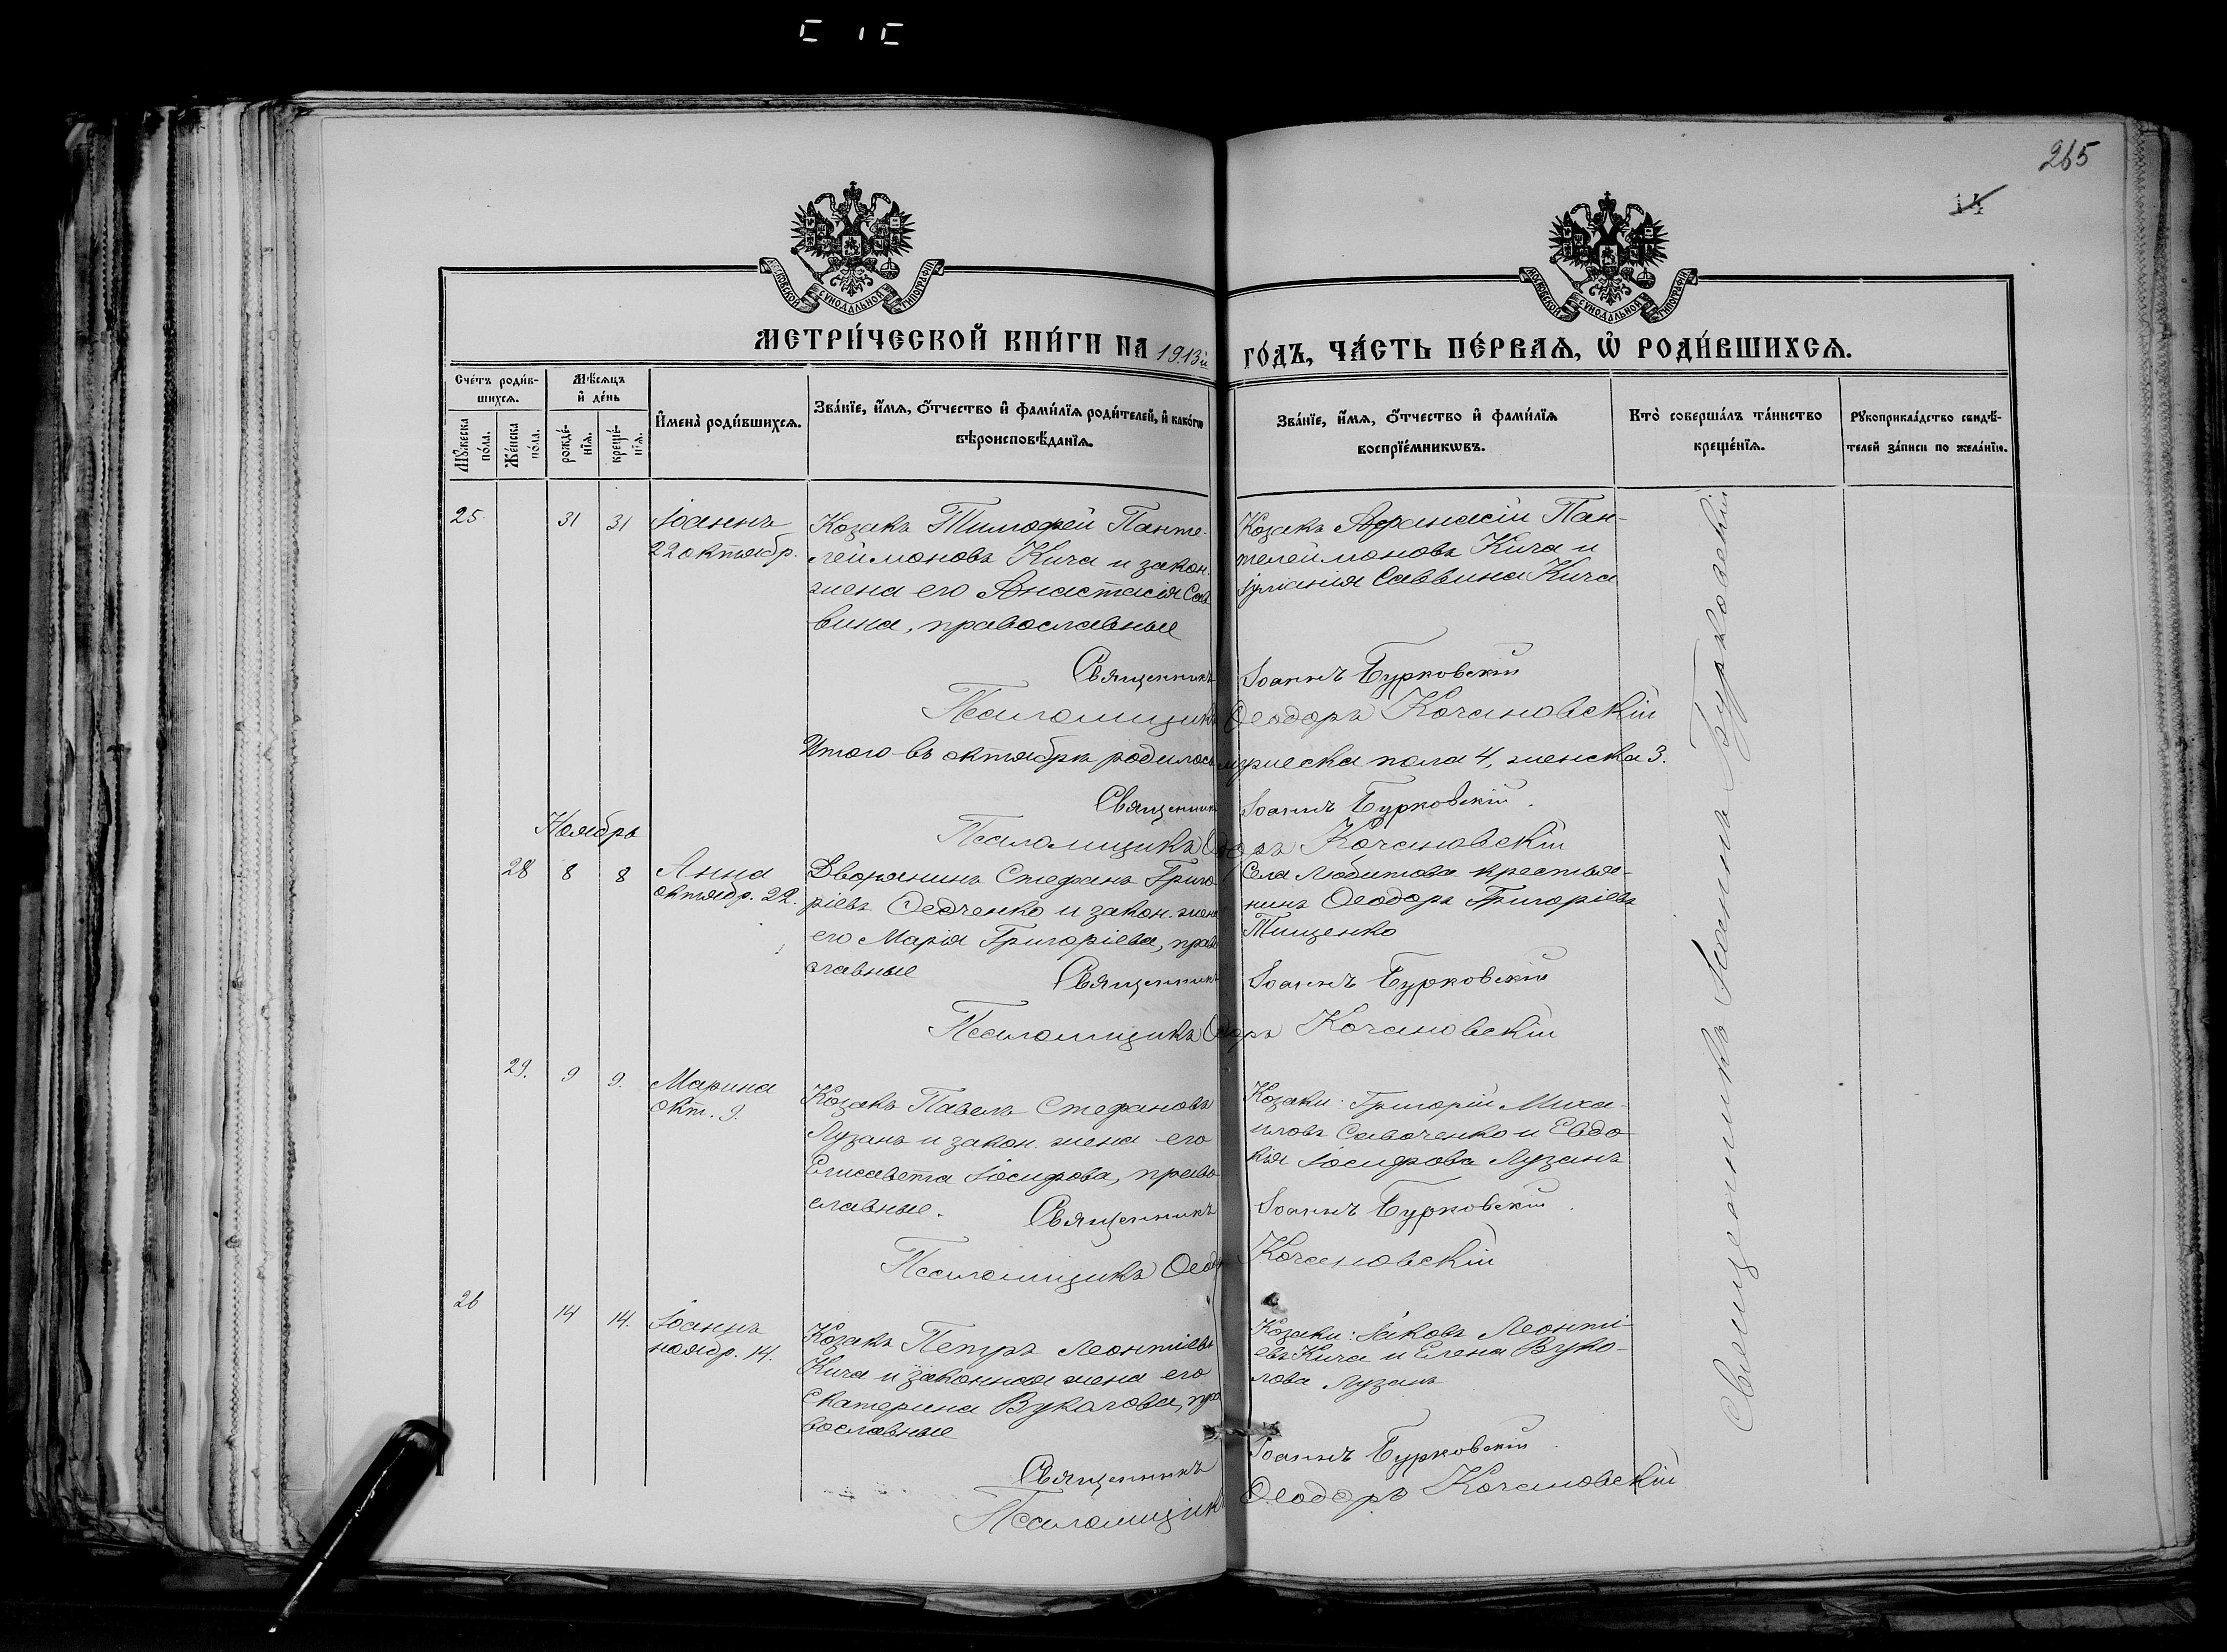 265
14
МОСКОВСКОЙ СѴНОДАЛЬНОЙ ТИПОГРАФІИ
МОСКОВСКОЙ СѴНОДАЛЬНОЙ ТИПОГРАФІИ
МЕТРИ́ЧЕСКОЙ КНИ́ГИ НА 1913й ГО́ДЪ, ЧА́СТЬ ПЕ́РВАЯ, Ѡ҆ РОДИ́ВШИХСЯ.
Сче́тъ роди́в-
шихся.
Мѣ́сяцъ
и҆ де́нь
Мꙋ́жеска
по́ла.
Же́нска
по́ла.
рожде́-
нїя.
креще́-
нїя.
И҆мена̀ роди́вшихся.
Зва́нїе, и҆́мя, ѻ҆́тчество и҆ фами́лїя роди́телей, и҆ како́гѡ
вѣроисповѣ́данїя.
Зва́нїе, и҆́мя, ѻ҆́тчество и҆ фами́лїя
воспрїе́мникѡвъ.
Кто̀ соверша́лъ та́инство
креще́нїя.
Рꙋкоприкла́дство свидѣ́-
телей за́писи по жела́нїю.
25. 31 31 Іоаннъ
22 октябр.
Козакъ Тимофей Панте-
леймоновъ Кича и закон.
жена его Анастасія Сав
вина, православные
Козакъ Афанасій Пан-
телеймоновъ Кича и
Іуліанія Саввина Кича
Священникъ Іоаннъ Бурковскій
Псаломщикъ Ѳеодоръ Кочановскій
Итого въ октябрѣ родилось мужеска пола 4, женска 3.
Священникъ Іоаннъ Бурковскій.
Псаломщикъ Ѳеодоръ Кочановскій
Ноябрь
28 8 8 Анна
октябр. 22.
Дворянинъ Стефанъ Григо
ріевъ Федченко и закон. жена
его Марія Григоріева, право
славные
Села Любитова крестья-
нинъ Ѳеодоръ Григоріевъ
Тищенко
Священникъ Іоаннъ Бурковскій
Псаломщикъ Ѳеодоръ Кочановскій
29. 9 9. Марина
окт. 9.
Козакъ Павелъ Стефановъ
Лузанъ и закон. жена его
Елисавета Іосифова, право
славные.
Козаки: Григорій Миха-
иловъ Савоченко и Евдо
кія Іосифова Лузанъ
Священникъ Іоаннъ Бурковскій.
Псаломщикъ Ѳеодоръ Кочановскій
26 14 14. Іоаннъ
ноябр. 14.
Козакъ Петръ Леонтіевъ
Кича и законная жена его
Екатерина Вукалова, пра
вославные
Козаки: Іаковъ Леонті-
евъ Кича и Елена Вуко-
лова Лузанъ
Священникъ Іоаннъ Бурковскій.
Псаломщикъ Ѳеодоръ Кочановскій
Священникъ Іоаннъ Бурковскій